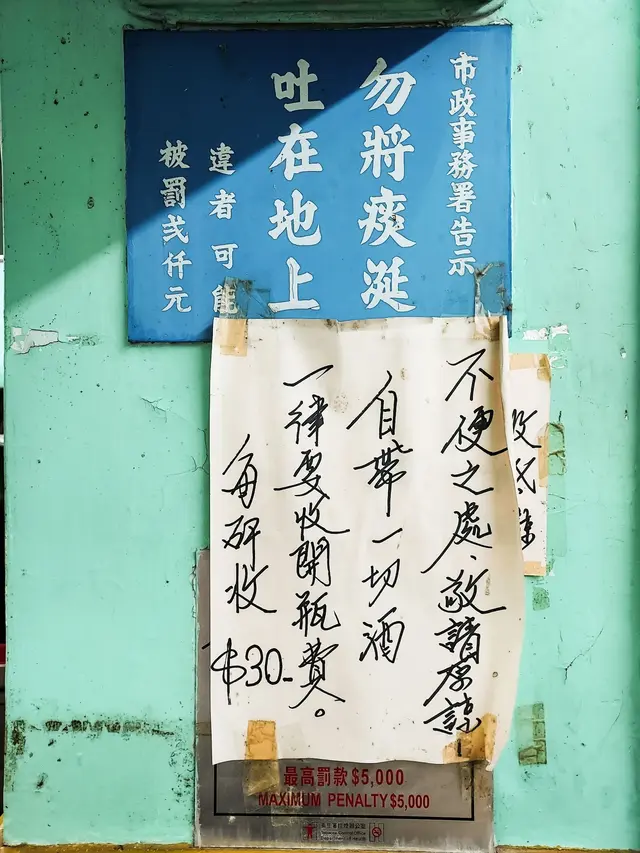 市政事務署告示
勿將痰涎
吐在地上
違者可能
被罰弍仟元
不便之處、敬請原諒
自帶一切酒
一律要收開瓶費。
每收$30-
最高罰款 $5,000
MAXIMUM PENALTY $5,000
Tobacco Control Office
Department of Health